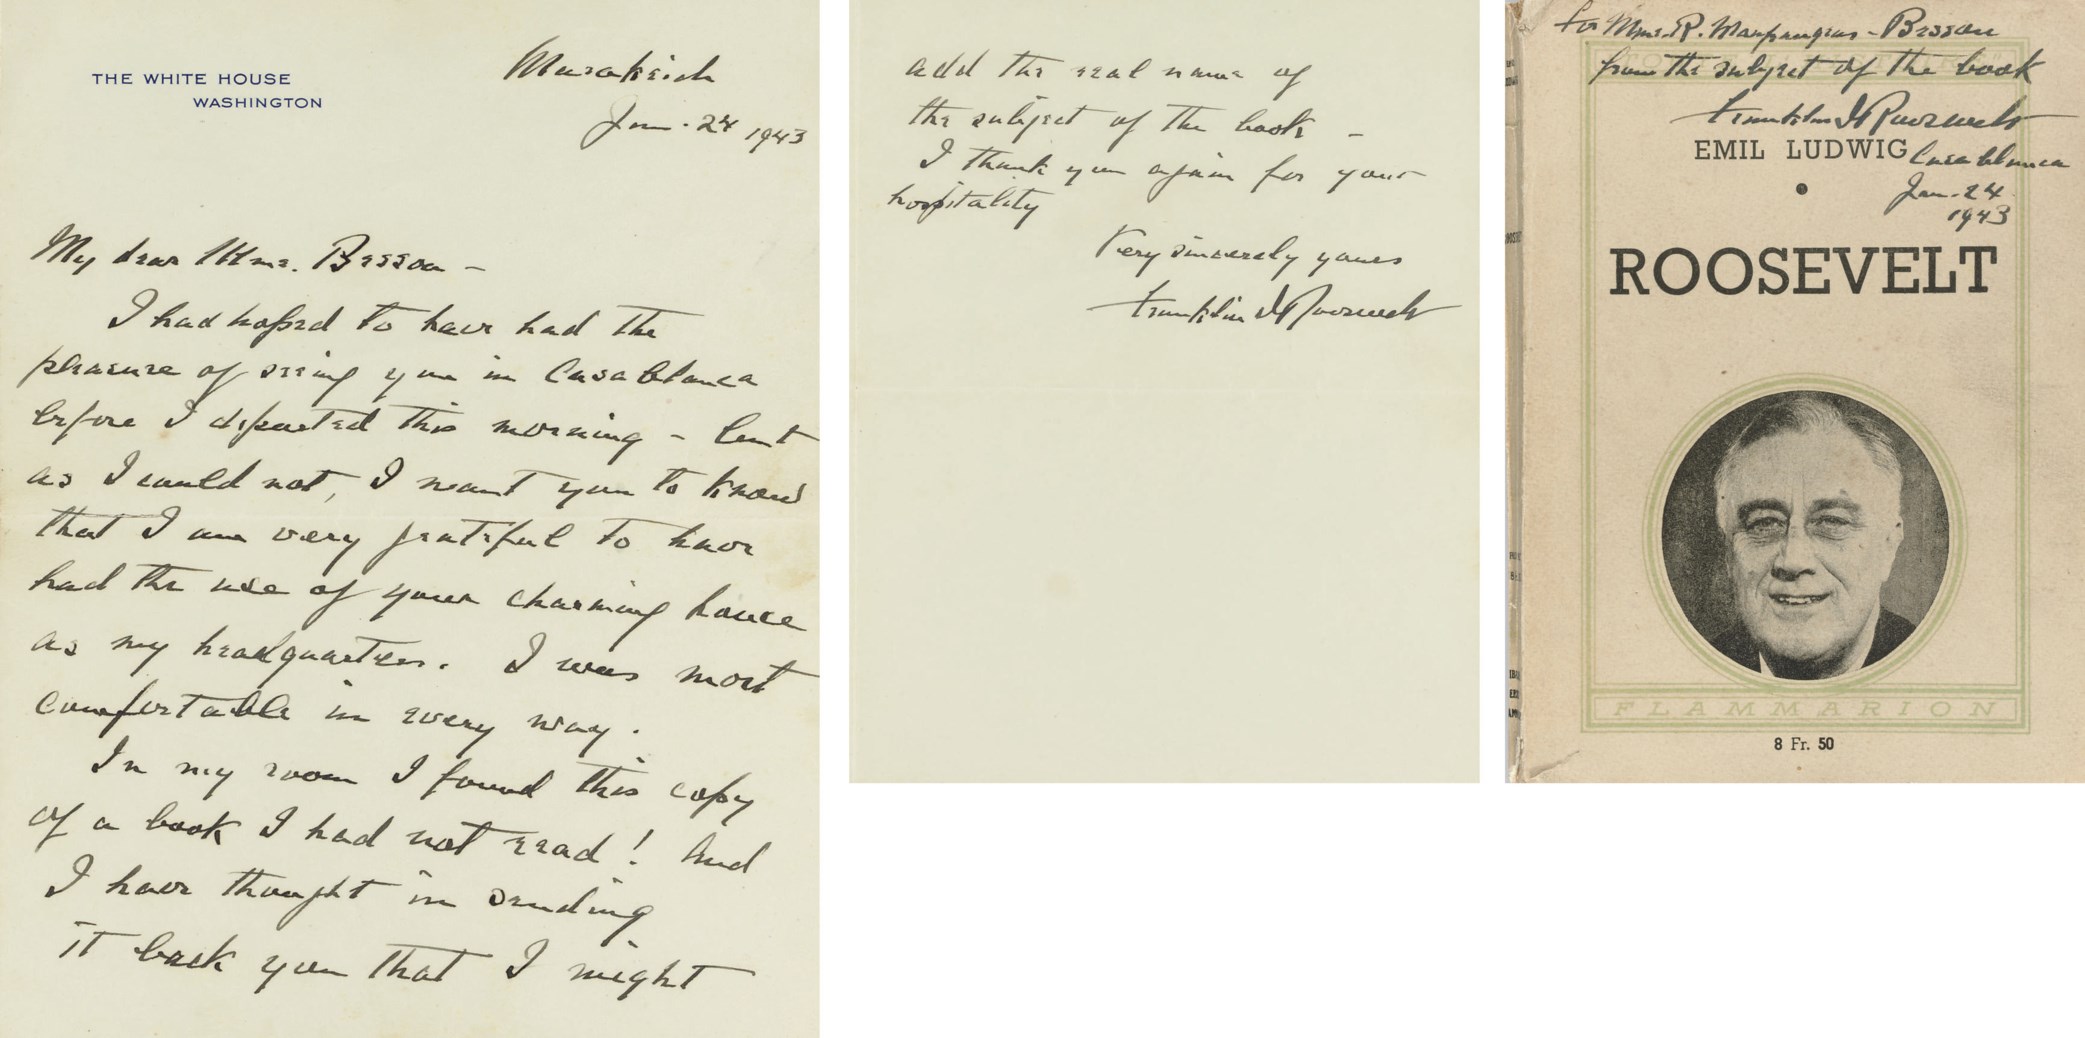 THE WHITE HOUSE
WASHINGTON
Marakeich
Jan. 24 1943
My dear Mme. Besson -
I had hoped to have had the
pleasure of seeing you in Casablanca
before I departed this morning - but
as I could not, I want you to know
that I am very grateful to have
had the use of your charming house
as my headquarters. I was most
comfortable in every way.
In my room I found this copy
of a book I had not read! And
I have thought in sending
it back you that I might
add the real name of
the subject of the book -
I thank you again for your
hospitality
Very sincerely yours
Franklin D Roosevelt
For Mme. R. - Besson
from the subject of the book
Franklin D Roosevelt
EMIL LUDWIG
Casablanca
Jan. 24
1943
ROOSEVELT
FLAMMARION
8 Fr. 50